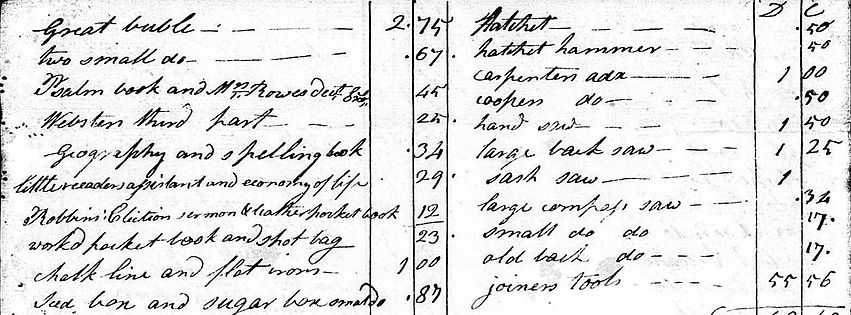 Great buble - - - 2.75
two small do - - - .67.
Psalm book and Mrs Rowes 45
Websters third part - - 25.
Geography and spelling book .34
little readers assistant and economy of life .29.
Robbins Election sermon & leather pocket book 12
workd pocket book and shot bag 23.
chalk line and flat irons - 1 00
box and sugar box small do .87
D C
Hatchet - - - - .50
hatchet hammer - - - 50
carpenters adx - - - 1 00
coopers do - - .50
hand saw - - - 1 50
large back saw - - - 1 25
sash saw - - - 1
large compass saw - - .34
small do do 17.
old back do - - - 17.
joiners tools - - - 55 56